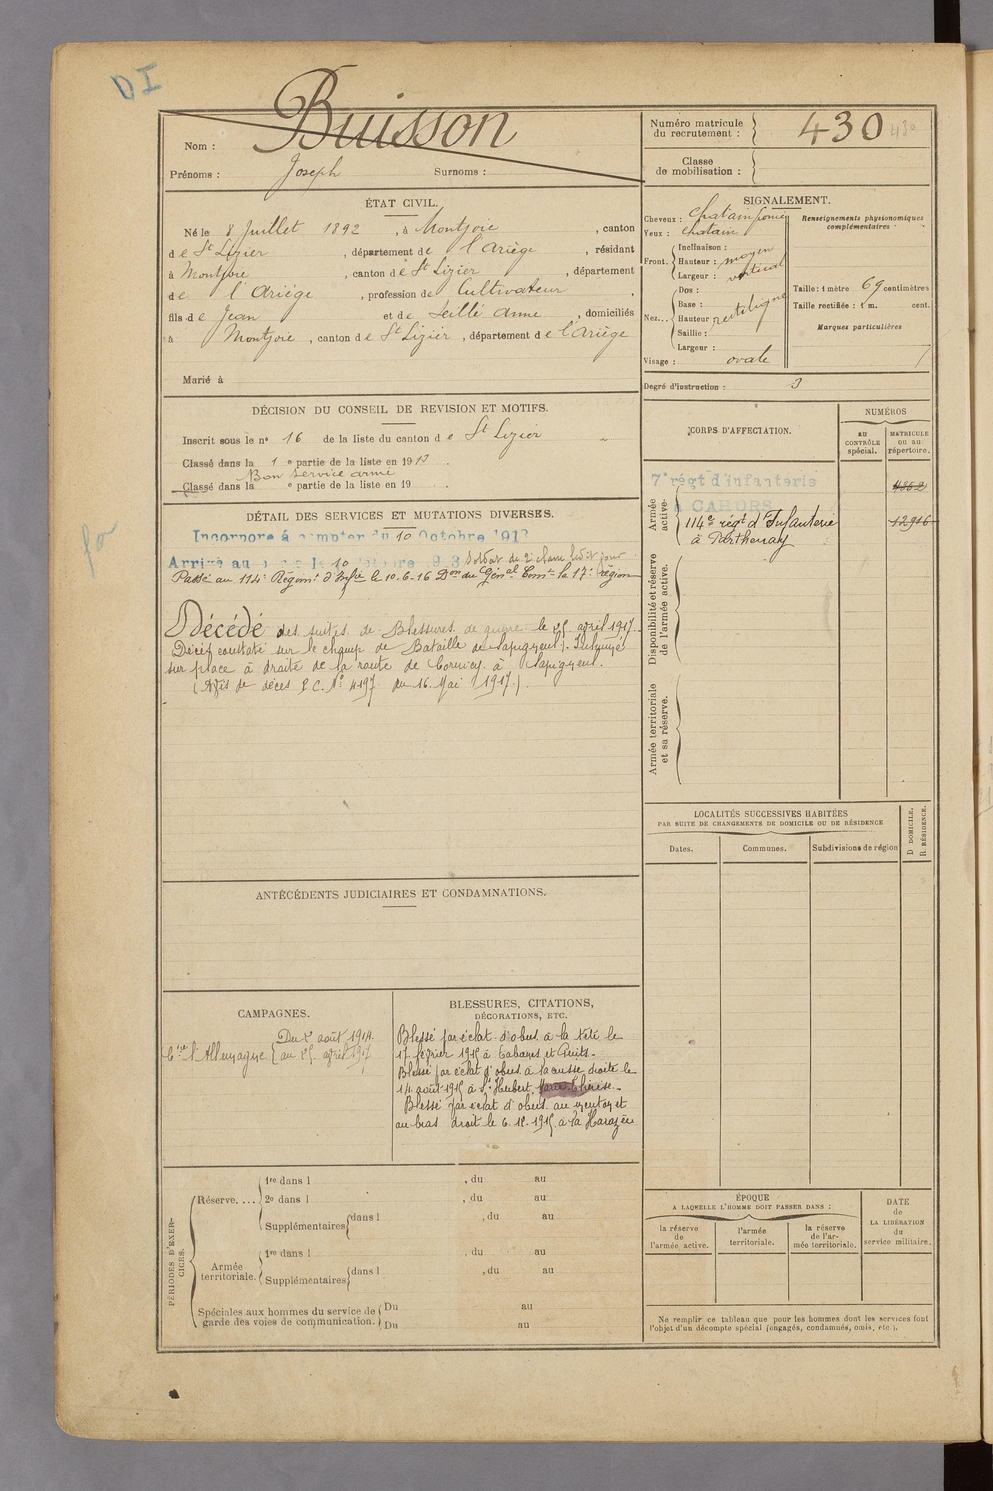 DI
Nom : Buisson
Prénoms : Joseph Surnoms :
Numéro matricule du recrutement : 430 430
Classe de mobilisation :
ÉTAT CIVIL.
Né le 8 Juillet 1892, à Montjoie, canton
de St Lizier, département de l'Ariège, résidant
à Montjoie, canton de St Lizier, département
de l'Ariège, profession de Cultivateur,
fils de Jean et de Seillé Anne, domiciliés
à Montjoie, canton de St Lizier, département de l'Ariège
Marié à
SIGNALEMENT.
Cheveux : chatain foncé
Yeux : chatain
Front. Inclinaison :
Hauteur : moyen
Largeur : vertical
Nez... Dos :
Base :
Hauteur rectiligne
Saillie :
Largeur :
Visage : ovale
Renseignements physionomiques complémentaires :
Taille : 1 mètre 69 centimètres
Taille rectifiée : 1 m. cent.
Marques particulières
Degré d'instruction : 3
DÉCISION DU CONSEIL DE REVISION ET MOTIFS.
Inscrit sous le n° 16 de la liste du canton de St Lizier
Classé dans la 1e partie de la liste en 1913.
Bon service armé
Classé dans la e partie de la liste en 19
DÉTAIL DES SERVICES ET MUTATIONS DIVERSES.
Incorporé à compter du 10 Octobre 1913
Arrivé au le 10 Octobre 1913 Soldat de 2e classe ledit jour
Passé au 114e Régimt d'Infie le 10-6-16 Don du Génal Comt la 17e région
Décédé des suites de Blessures de guerre le 25 avril 1917
Décès constaté sur le champ de Bataille de Sapigneul. Inhumé
sur place à droite de la route de Cormicy à Sapigneul.
(Avis de décès P.C. N° 4197 du 16 Mai 1917.)
CORPS D'AFFECTATION.
NUMÉROS
AU CONTRÔLE spécial.
MATRICULE ou au répertoire.
Armée active.
7e régt d'infanterie 4362
à CAHORS
114e régt d'Infanterie 12916
à Parthenay
Disponibilité et réserve de l'armée active.
Armée territoriale et sa réserve.
LOCALITÉS SUCCESSIVES HABITÉES
PAR SUITE DE CHANGEMENTS DE DOMICILE OU DE RÉSIDENCE
Dates. Communes. Subdivisions de région
D DOMICILE.
R. RÉSIDENCE.
ANTÉCÉDENTS JUDICIAIRES ET CONDAMNATIONS.
CAMPAGNES.
Du 2 août 1914
Ctre l'Allemagne au 25 avril 1917
BLESSURES, CITATIONS,
DÉCORATIONS, ETC.
Blessé par éclat d'obus à la tête le
17 février 1915 à Cabanes et Puits.
Blessé par éclat d'obus à la cuisse droite le
14 août 1915 à St Hubert, Marie-Thérèse.
Blessé par éclat d'obus au menton et
au bras droit le 6.12.1915 à la Harazée
PÉRIODES D'EXERCICES.
Réserve.... 1re dans l , du au
2e dans l , du au
Supplémentaires dans l , du au
Armée territoriale. 1re dans l , du au
Supplémentaires dans l , du au
Spéciales aux hommes du service de garde des voies de communication. Du au
Du au
ÉPOQUE
A LAQUELLE L'HOMME DOIT PASSER DANS :
la réserve de l'armée active.
l'armée territoriale.
la réserve de l'armée territoriale.
DATE de LA LIBÉRATION du service militaire.
Ne remplir ce tableau que pour les hommes dont les services font
l'objet d'un décompte spécial (engagés, condamnés, omis, etc.).